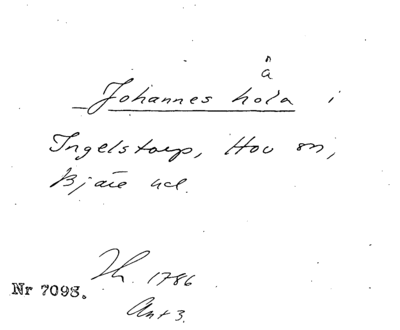 å
Johannes hola i
Ingelstorp, Hov sn,
Bjäre hd.
Th. 1786
Nr 7093.
Ant 3.